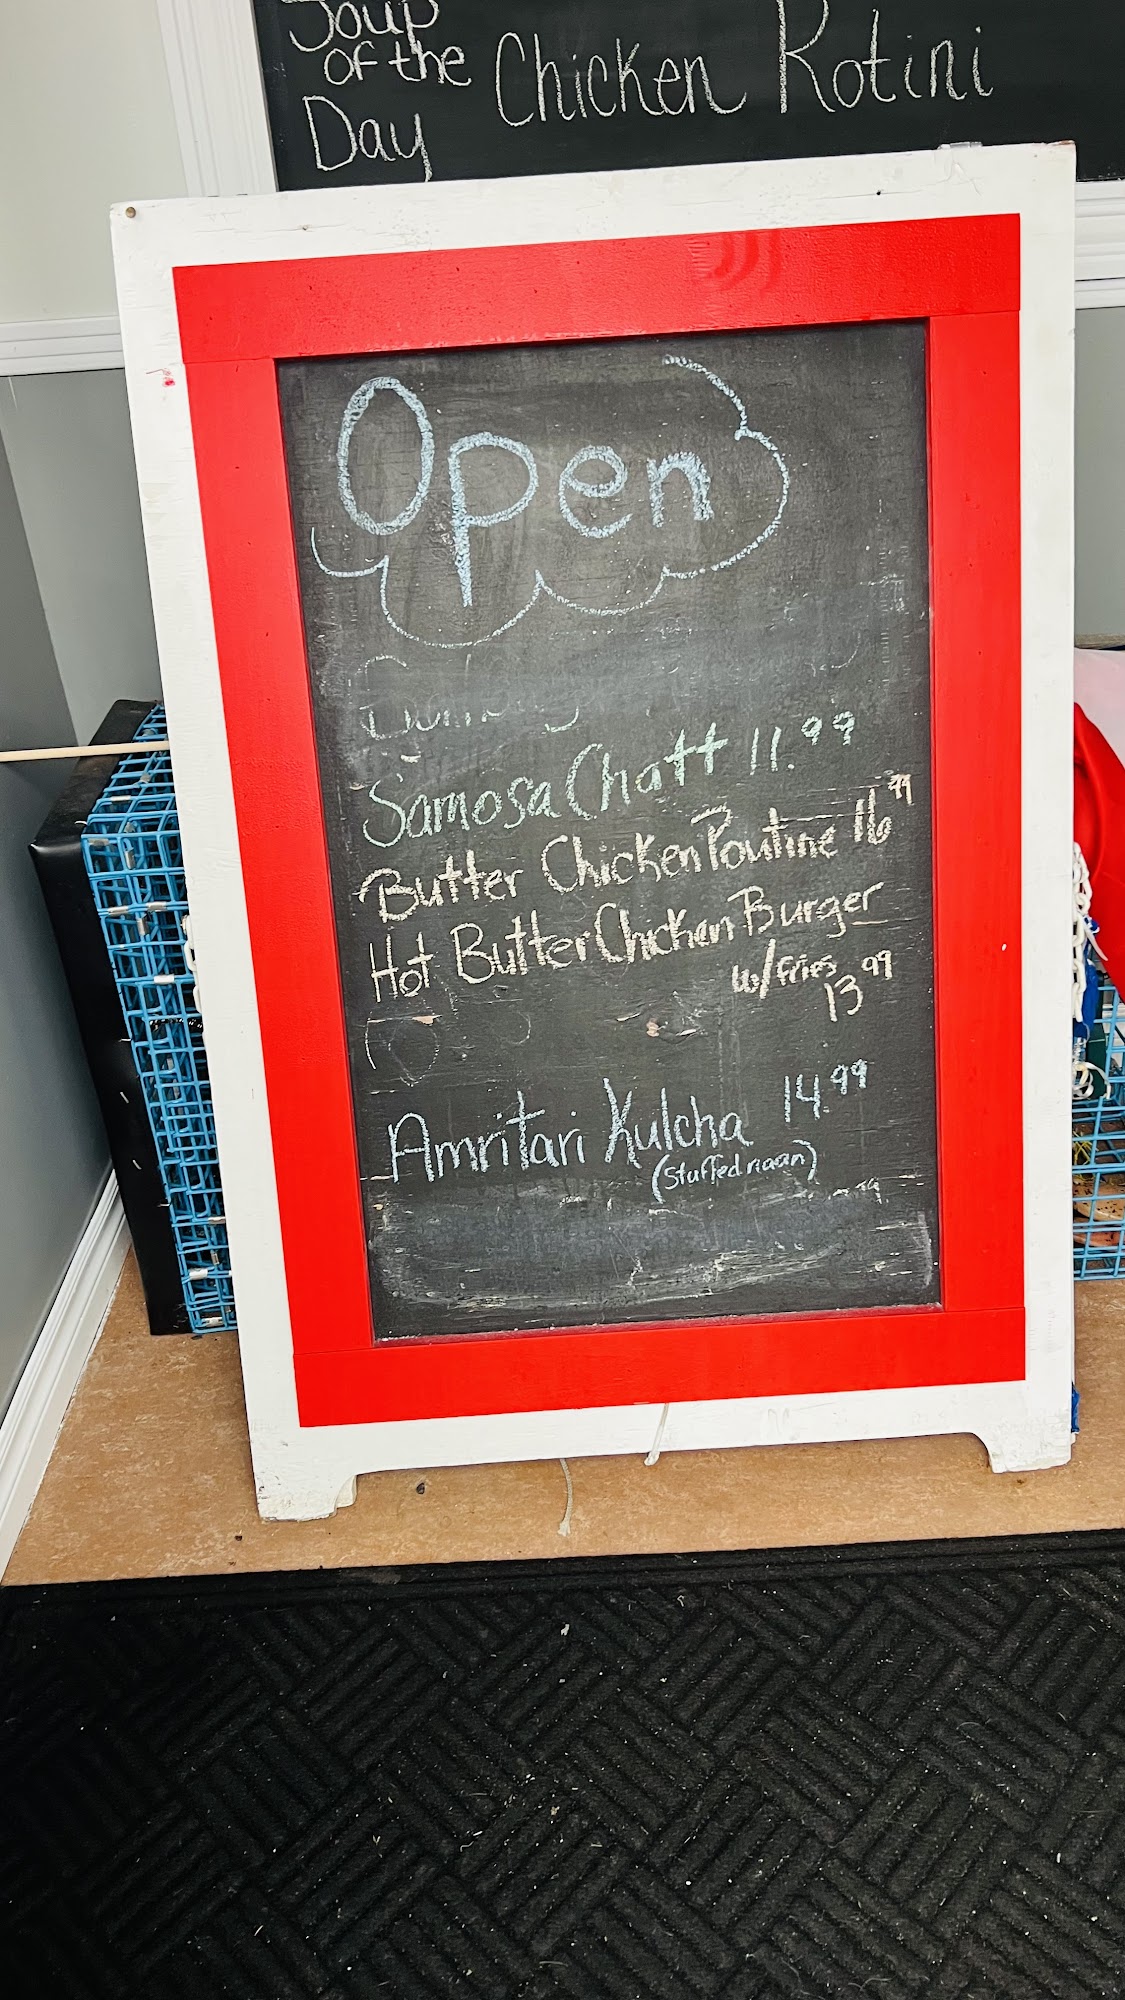 Soup
of the
Day
Chicken Rotini
Open
Samosa Chatt 11.99
Butter Chicken Poutine 16.99
Hot Butter Chicken Burger
w/fries
13.99
Amritari Kulcha 14.99
(stuffed naan)